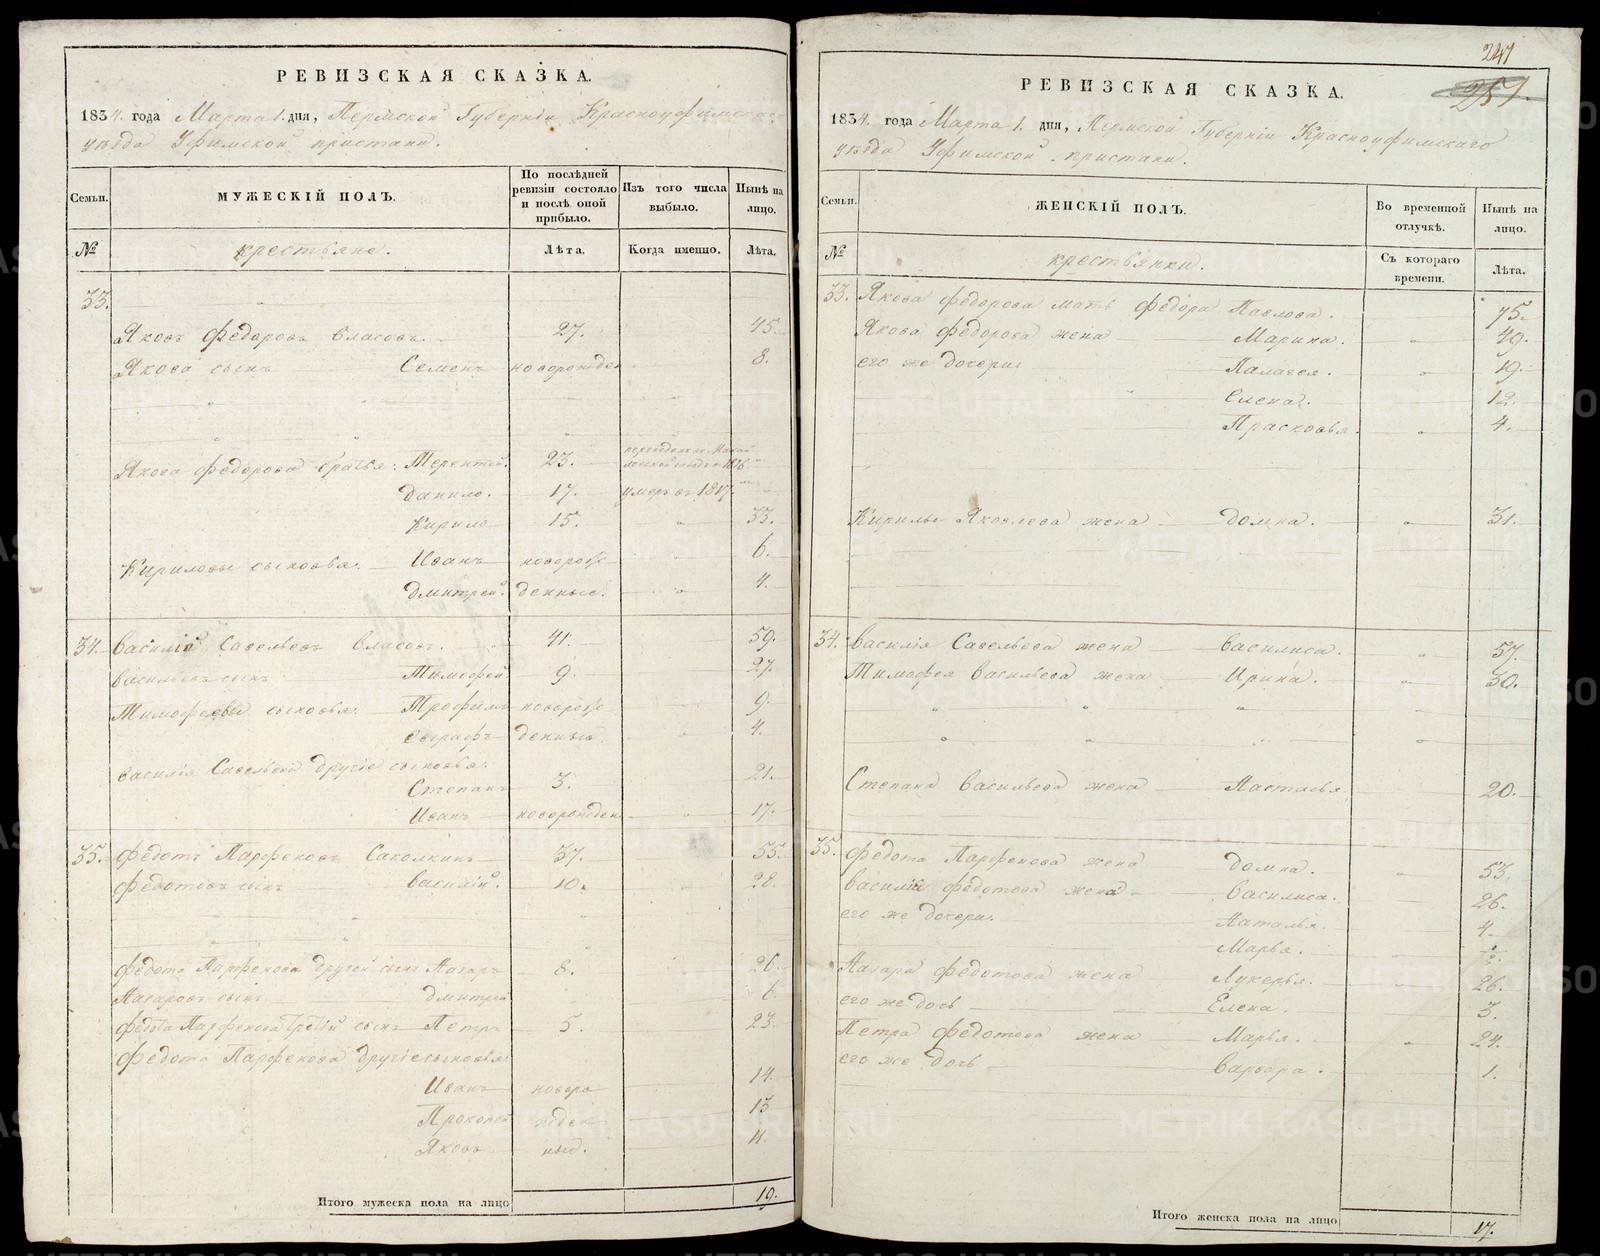 РЕВИЗСКАЯ СКАЗКА.
1834. года Марта 1. дня, Пермской Губерніи Красноуфимскаго
уѣзда Уфимской пристани.
Семьи. МУЖЕСКІЙ ПОЛЪ. По послѣдней ревизіи состояло и послѣ оной прибыло. Изъ того числа выбыло. Нынѣ на лицо.
№ крестьяне. Лѣта. Когда именно. Лѣта.
33.
Яковъ Федоровъ Власовъ. 27. 45.
Якова сынъ Семенъ новорожден 8.
Якова Федорова братья: Терентей. 23.
Данило. 17. умеръ въ 1817.
Кирило 15. 33.
Кириловы сыновья. Иванъ новорож 6.
Дмитрей. денные. 4.
34. Василій Савельевъ Власовъ. 41. 59.
Васильевъ сынъ Тимофей 9. 27.
Тимофеевы сыновья. Трофимъ новорож 9.
Евграфъ денные. 4.
Василія Савельева другіе сыновья.
Степанъ 3. 21.
Иванъ новорожден 17.
35. Федотъ Парфеновъ Саколкинъ 37. 55.
Федотовъ сынъ Василій. 10. 28.
Федота Парфенова другой сынъ Назаръ 8. 26.
Назаровъ сынъ Дмитрей 6.
Федота Парфенова третій сынъ Петръ 5. 23.
Федота Парфенова другіе сыновья
Иванъ новоро 14.
Прокопей жден 13
Яковъ ные. 11.
Итого мужеска пола на лицо 19.
247
257.
РЕВИЗСКАЯ СКАЗКА.
1834. года Марта 1. дня, Пермской Губерніи Красноуфимскаго
уѣзда Уфимской пристани.
Семьи. ЖЕНСКІЙ ПОЛЪ. Во временной отлучкѣ. Нынѣ на лицо.
№ крестьянки. Съ котораго времени. Лѣта.
33. Якова Федорова мать Федора Павлова. 75.
Якова Федорова жена Марина. 49.
его же дочери Палагея. 19.
Елена. 12.
Прасковья. 4.
Кирилы Яковлева жена Домна. 31.
34. Василія Савельева жена Василиса. 57.
Тимофея Васильева жена Ирина. 30.
Степана Васильева жена Настасья. 20.
35. Федота Парфенова жена Домна. 53.
Василія Федотова жена Василиса. 26.
его же дочери. Наталья. 4.
Марья.
Назара Федотова жена Лукерья. 26.
его же дочь Елена. 3.
Петра Федотова жена Марья. 24.
его же дочь Варвара. 1.
Итого женска пола на лицо 17.
METRIKI.GASO-URAL.RU